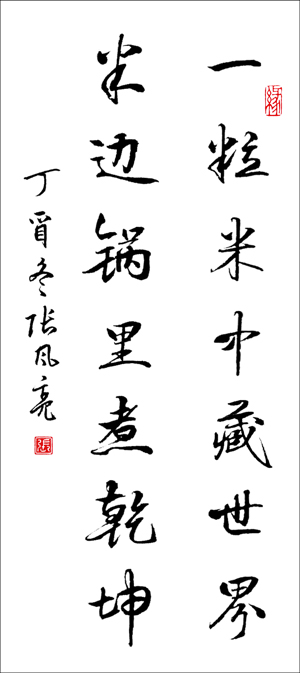 一粒米中藏世界
半边锅里煮乾坤
丁酉冬张风亮
缘
張